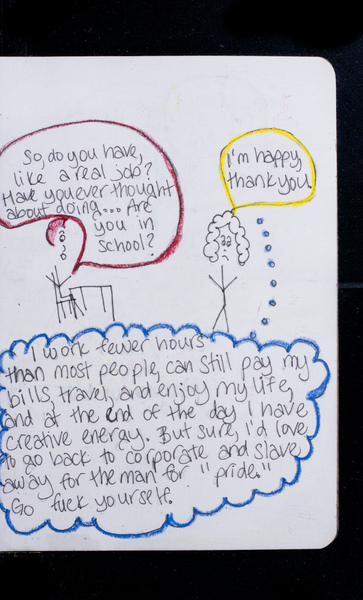 So, do you have,
like a real job?
Have you ever thought
about doing.... Are
you in
school?
I'm happy,
thank you.
I work fewer hours
than most people, can still pay my
bills, travel, and enjoy my life,
and at the end of the day I have
creative energy. But sure, I'd love
to go back to corporate and slave
away for the man for "pride."
Go fuck yourself.